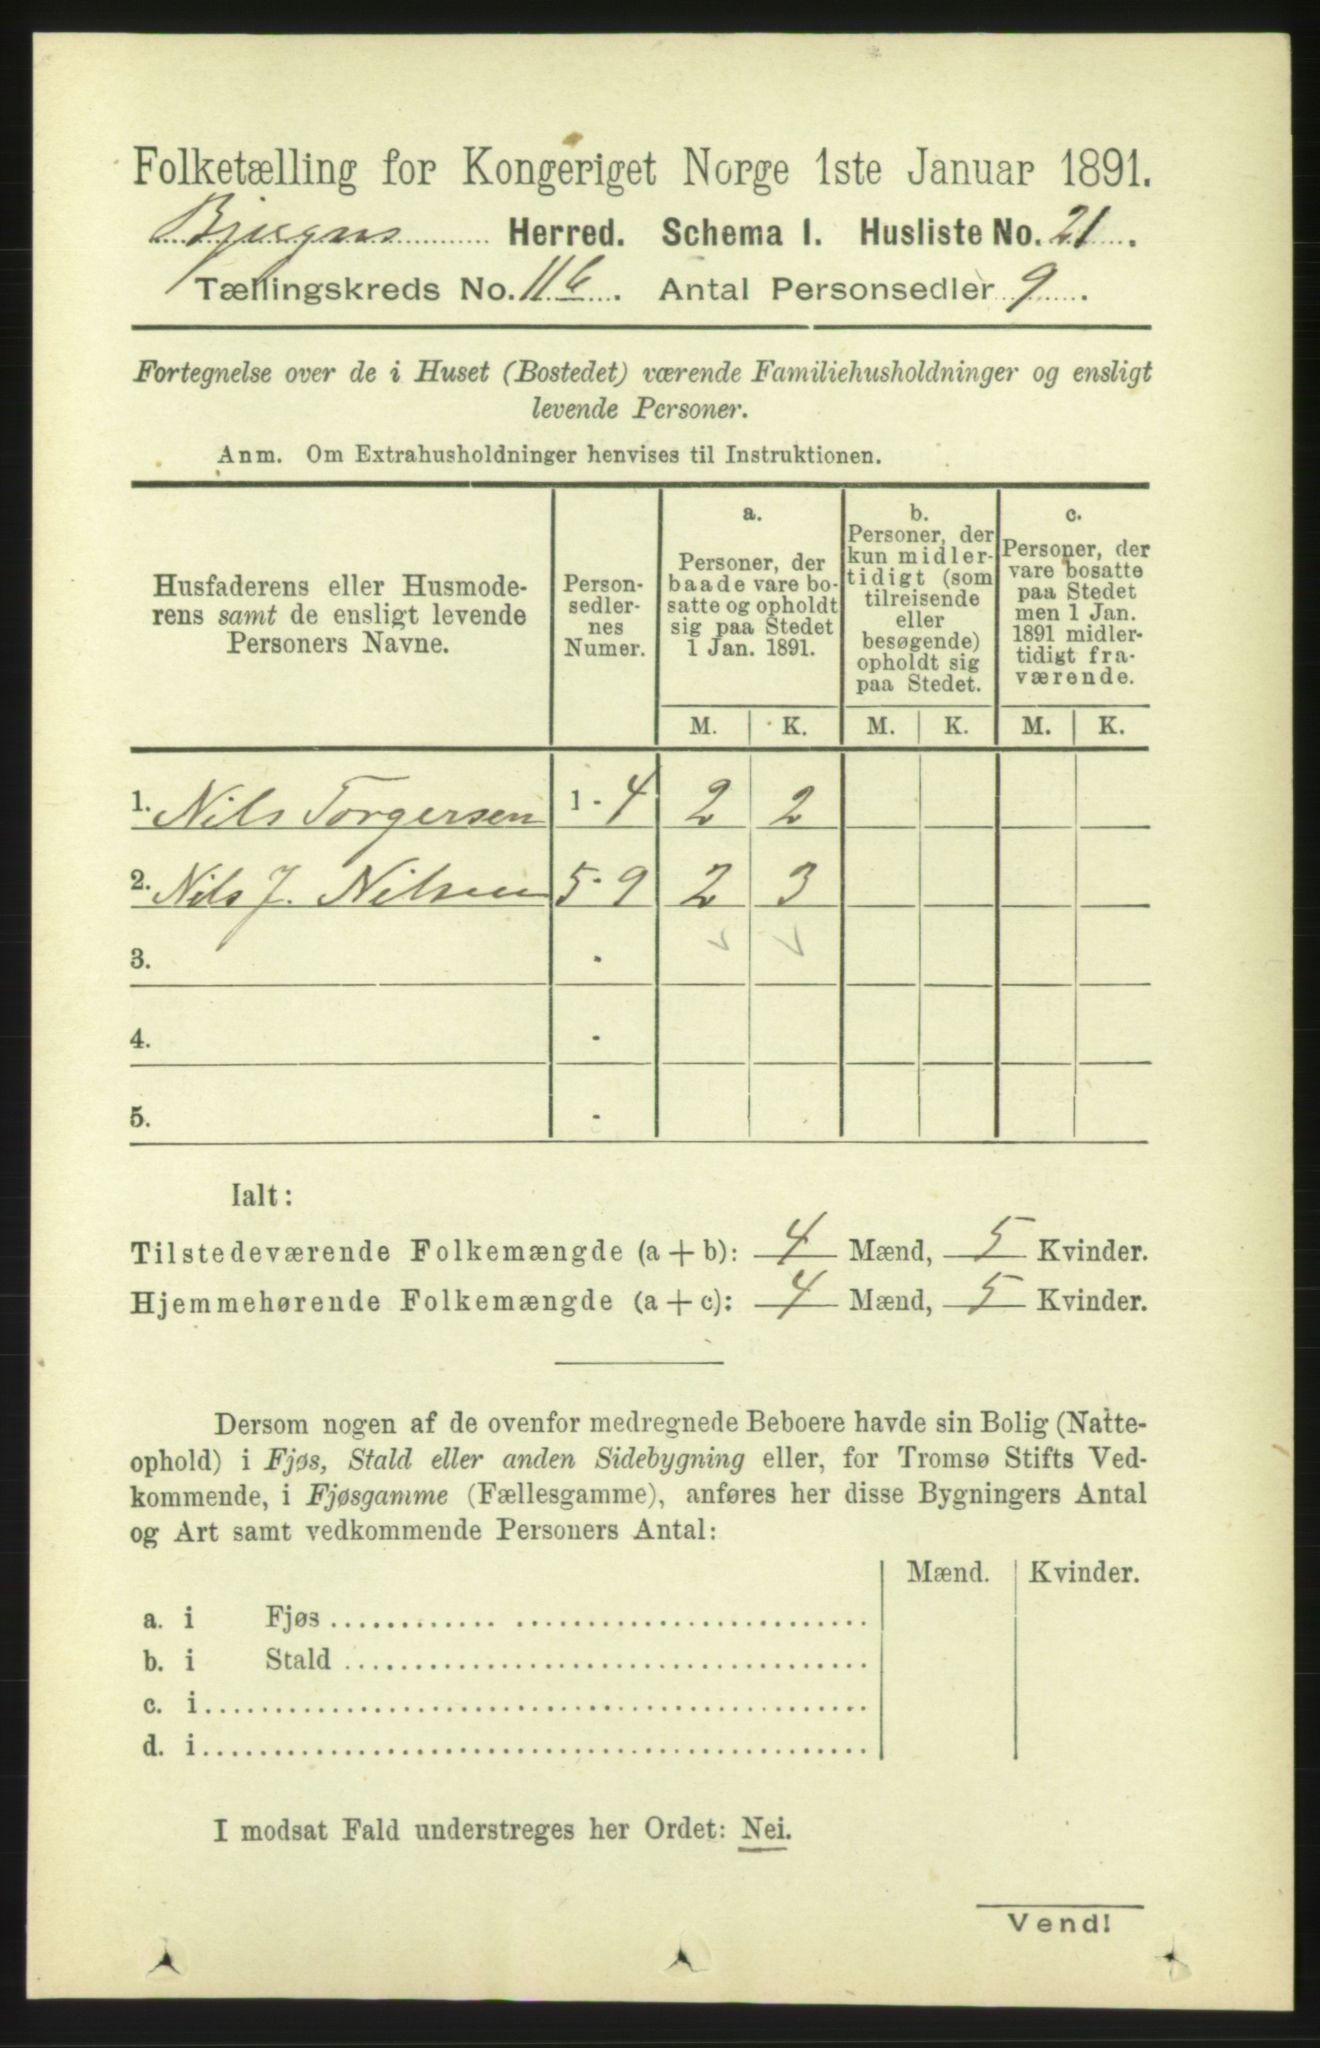 Folketælling for Kongeriget Norge 1ste Januar 1891.
Bjugns Herred. Schema I. Husliste No. 21.
Tællingskreds No. 11b. Antal Personsedler 9.
Fortegnelse over de i Huset (Bostedet) værende Familiehusholdninger og ensligt
levende Personer.
Anm. Om Extrahusholdninger henvises til Instruktionen.
Husfaderens eller Husmode-
rens samt de ensligt levende
Personers Navne.
Person-
sedler-
nes
Numer.
a.
Personer, der
baade vare bo-
satte og opholdt
sig paa Stedet
1 Jan. 1891.
b.
Personer, der
kun midler-
tidigt (som
tilreisende
eller
besøgende)
opholdt sig
paa Stedet.
c.
Personer, der
vare bosatte
paa Stedet
men 1 Jan.
1891 midler-
tidigt fra-
værende.
M. K. M. K. M. K.
1. Nils Torgersen 1 - 4 2 2
2. Nils J. Nilsen 5 - 9 2 3
3. -
4. -
5. -
Ialt:
Tilstedeværende Folkemængde (a + b): 4 Mænd, 5 Kvinder.
Hjemmehørende Folkemængde (a + c): 4 Mænd, 5 Kvinder.
Dersom nogen af de ovenfor medregnede Beboere havde sin Bolig (Natte-
ophold) i Fjøs, Stald eller anden Sidebygning eller, for Tromsø Stifts Ved-
kommende, i Fjøsgamme (Fællesgamme), anføres her disse Bygningers Antal
og Art samt vedkommende Personers Antal:
Mænd. Kvinder.
a. i Fjøs
b. i Stald
c. i
d. i
I modsat Fald understreges her Ordet: Nei.
Vend!